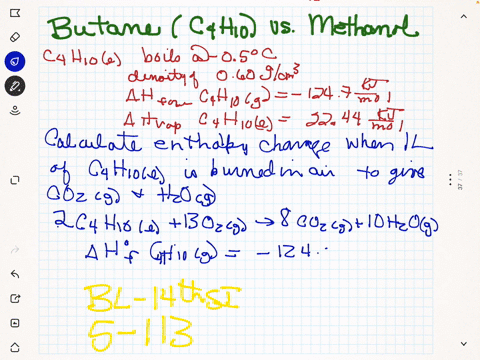 Butane (C4H10) vs. Methanol
C4H10(l) boils @ -0.5°C
density of 0.60 g/cm³
ΔH form C4H10(g) = -124.7 kJ/mol
ΔH vap C4H10(l) = 22.44 kJ/mol
Calculate enthalpy change when 1L
of C4H10(l) is burned in air to give
CO2(g) & H2O(g)
2C4H10(l) + 13O2(g) → 8CO2(g) + 10H2O(g)
ΔH°f C4H10(g) = -124.
BL-14th SI
5-113
37 / 37